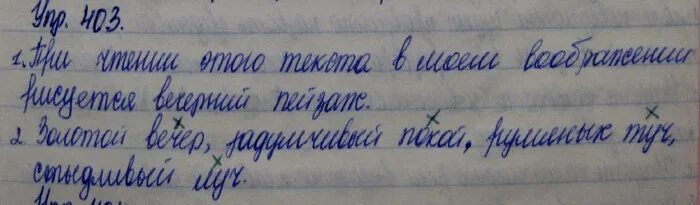 Упр. 403.
1. При чтении этого текста в моем воображении
рисуется вечерний пейзаж.
2. Золотой вечер, задумчивый покой, румяных туч,
стыдливый луч.